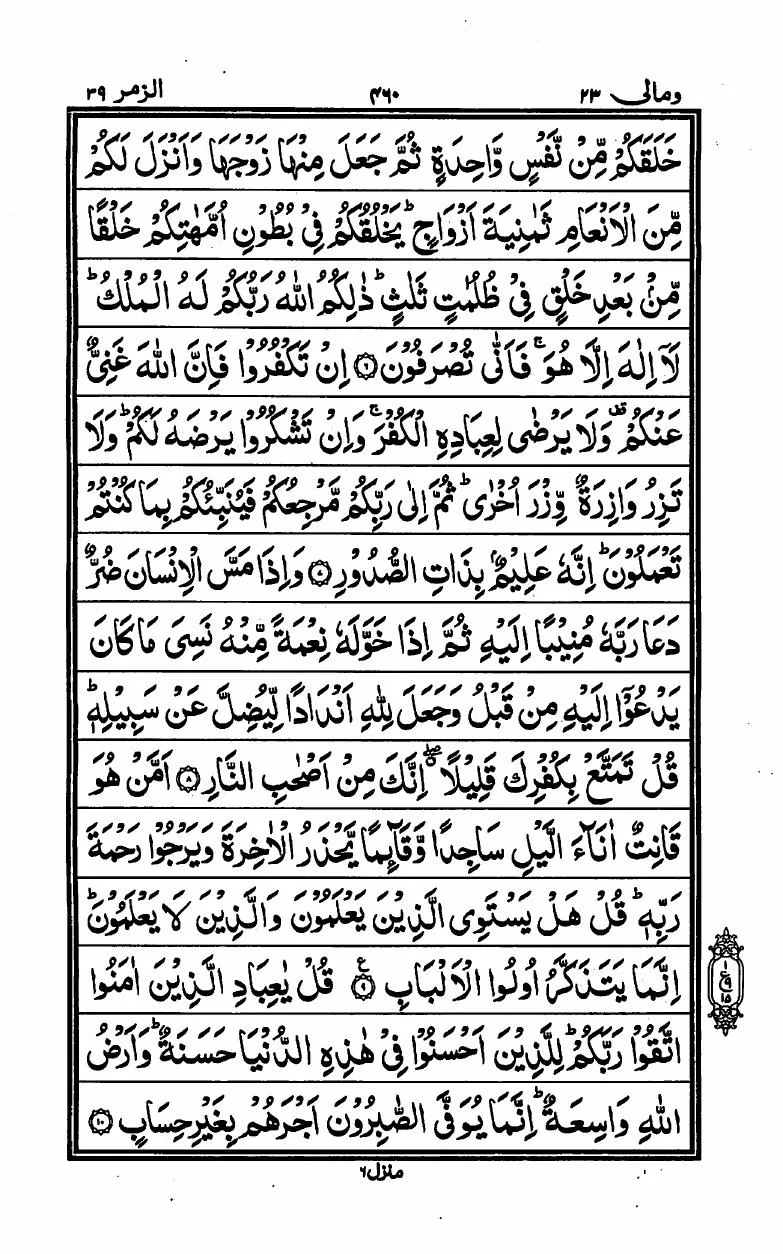 ومالی ۲۳ ۴۶۰ الزمر ۳۹
خَلَقَكُمْ مِّنْ نَّفْسٍ وَّاحِدَةٍ ثُمَّ جَعَلَ مِنْهَا زَوْجَهَا وَاَنْزَلَ لَكُمْ
مِّنَ الْاَنْعَامِ ثَمٰنِيَةَ اَزْوَاجٍ ؕ يَخْلُقُكُمْ فِيْ بُطُوْنِ اُمَّهٰتِكُمْ خَلْقًا
مِّنْۢ بَعْدِ خَلْقٍ فِيْ ظُلُمٰتٍ ثَلٰثٍ ؕ ذٰلِكُمُ اللّٰهُ رَبُّكُمْ لَهُ الْمُلْكُ ؕ
لَاۤ اِلٰهَ اِلَّا هُوَ ۚ فَاَنّٰى تُصْرَفُوْنَ ۶ اِنْ تَكْفُرُوْا فَاِنَّ اللّٰهَ غَنِيٌّ
عَنْكُمْ ۟ وَلَا يَرْضٰى لِعِبَادِهِ الْكُفْرَ ۚ وَاِنْ تَشْكُرُوْا يَرْضَهُ لَكُمْ ؕ وَلَا
تَزِرُ وَازِرَةٌ وِّزْرَ اُخْرٰى ؕ ثُمَّ اِلٰى رَبِّكُمْ مَّرْجِعُكُمْ فَيُنَبِّئُكُمْ بِمَا كُنْتُمْ
تَعْمَلُوْنَ ؕ اِنَّهٗ عَلِيْمٌۢ بِذَاتِ الصُّدُوْرِ ۷ وَاِذَا مَسَّ الْاِنْسَانَ ضُرٌّ
دَعَا رَبَّهٗ مُنِيْبًا اِلَيْهِ ثُمَّ اِذَا خَوَّلَهٗ نِعْمَةً مِّنْهُ نَسِيَ مَا كَانَ
يَدْعُوْۤا اِلَيْهِ مِنْ قَبْلُ وَجَعَلَ لِلّٰهِ اَنْدَادًا لِّيُضِلَّ عَنْ سَبِيْلِهٖ ؕ
قُلْ تَمَتَّعْ بِكُفْرِكَ قَلِيْلًا ۖ اِنَّكَ مِنْ اَصْحٰبِ النَّارِ ۸ اَمَّنْ هُوَ
قَانِتٌ اٰنَآءَ الَّيْلِ سَاجِدًا وَّقَآئِمًا يَّحْذَرُ الْاٰخِرَةَ وَيَرْجُوْا رَحْمَةَ
رَبِّهٖ ؕ قُلْ هَلْ يَسْتَوِي الَّذِيْنَ يَعْلَمُوْنَ وَالَّذِيْنَ لَا يَعْلَمُوْنَ ؕ
اِنَّمَا يَتَذَكَّرُ اُولُوا الْاَلْبَابِ ۹ ع قُلْ يٰعِبَادِ الَّذِيْنَ اٰمَنُوا
اتَّقُوْا رَبَّكُمْ ؕ لِلَّذِيْنَ اَحْسَنُوْا فِيْ هٰذِهِ الدُّنْيَا حَسَنَةٌ ؕ وَاَرْضُ
اللّٰهِ وَاسِعَةٌ ؕ اِنَّمَا يُوَفَّى الصّٰبِرُوْنَ اَجْرَهُمْ بِغَيْرِ حِسَابٍ ۱۰
۱
ع ۹
۱۵
منزل ۶